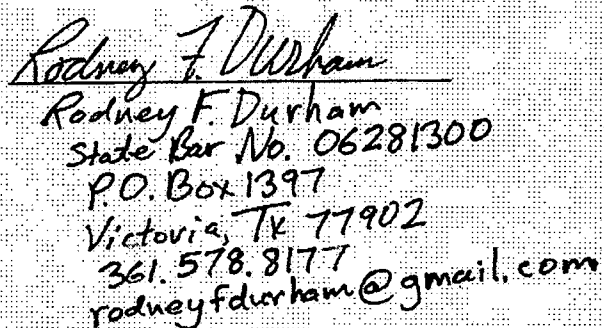 Rodney F. Durham
Rodney F. Durham
State Bar No. 06281300
P.O. Box 1397
Victoria, TX 77902
361.578.8177
rodneyfdurham@gmail.com